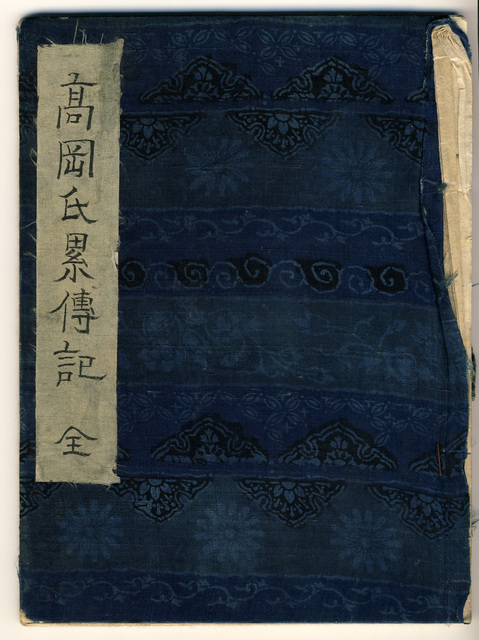 髙岡氏累傳記 全